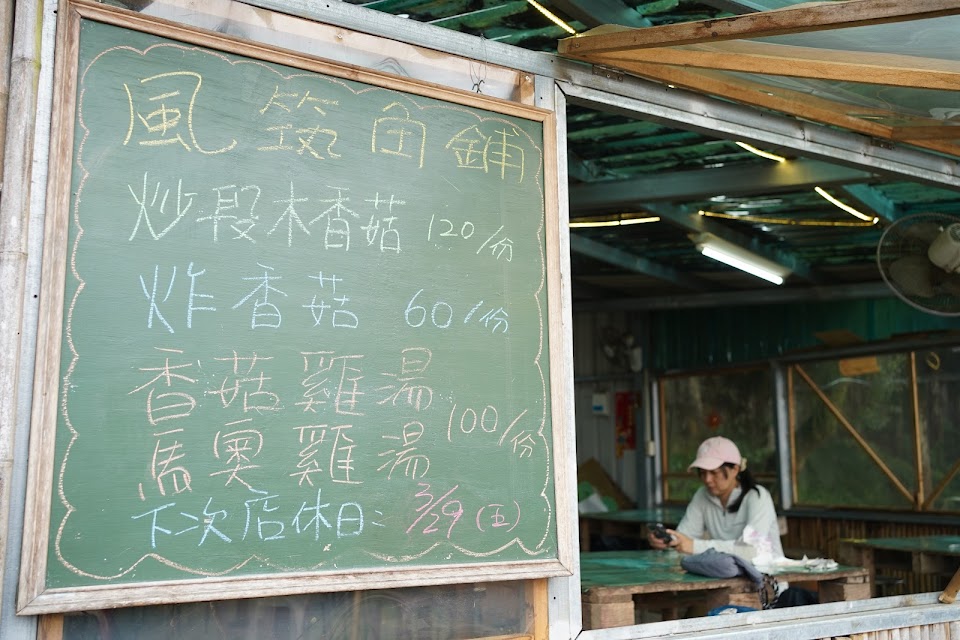 風筑商鋪
炒段木香菇 120/份
炸香菇 60/份
香菇雞湯
馬奧雞湯 100/份
下次店休日: 3/29 (五)